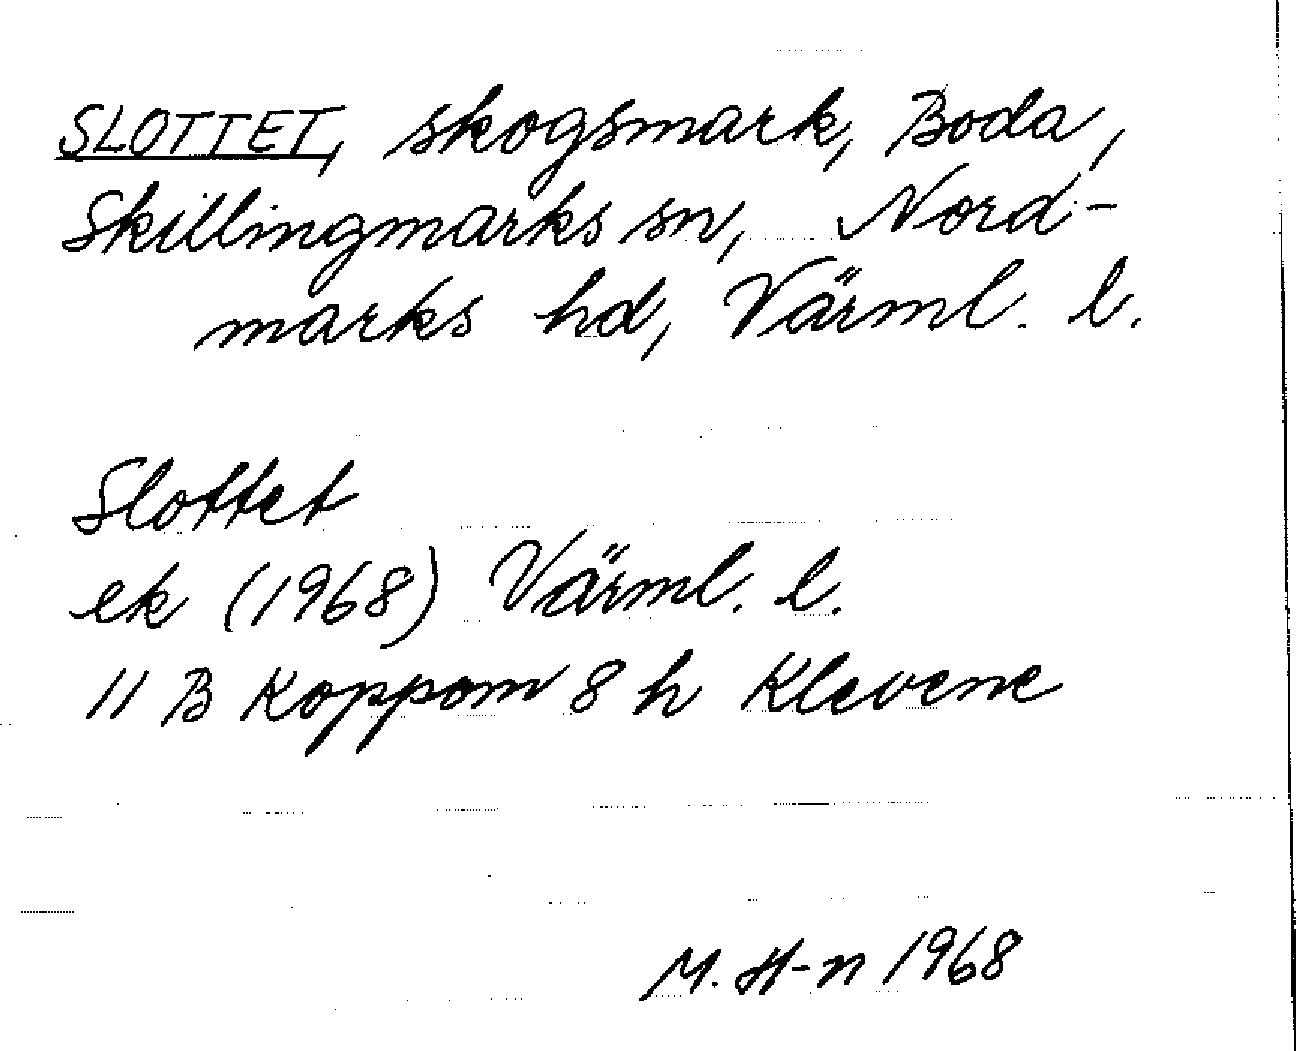 SLOTTET, skogsmark, Boda,
Skillingmarks sn, Nord-
marks hd, Värml. l.
Slottet
ek (1968) Värml. l.
11 B Koppom 8 h Klevene
M. H-n 1968